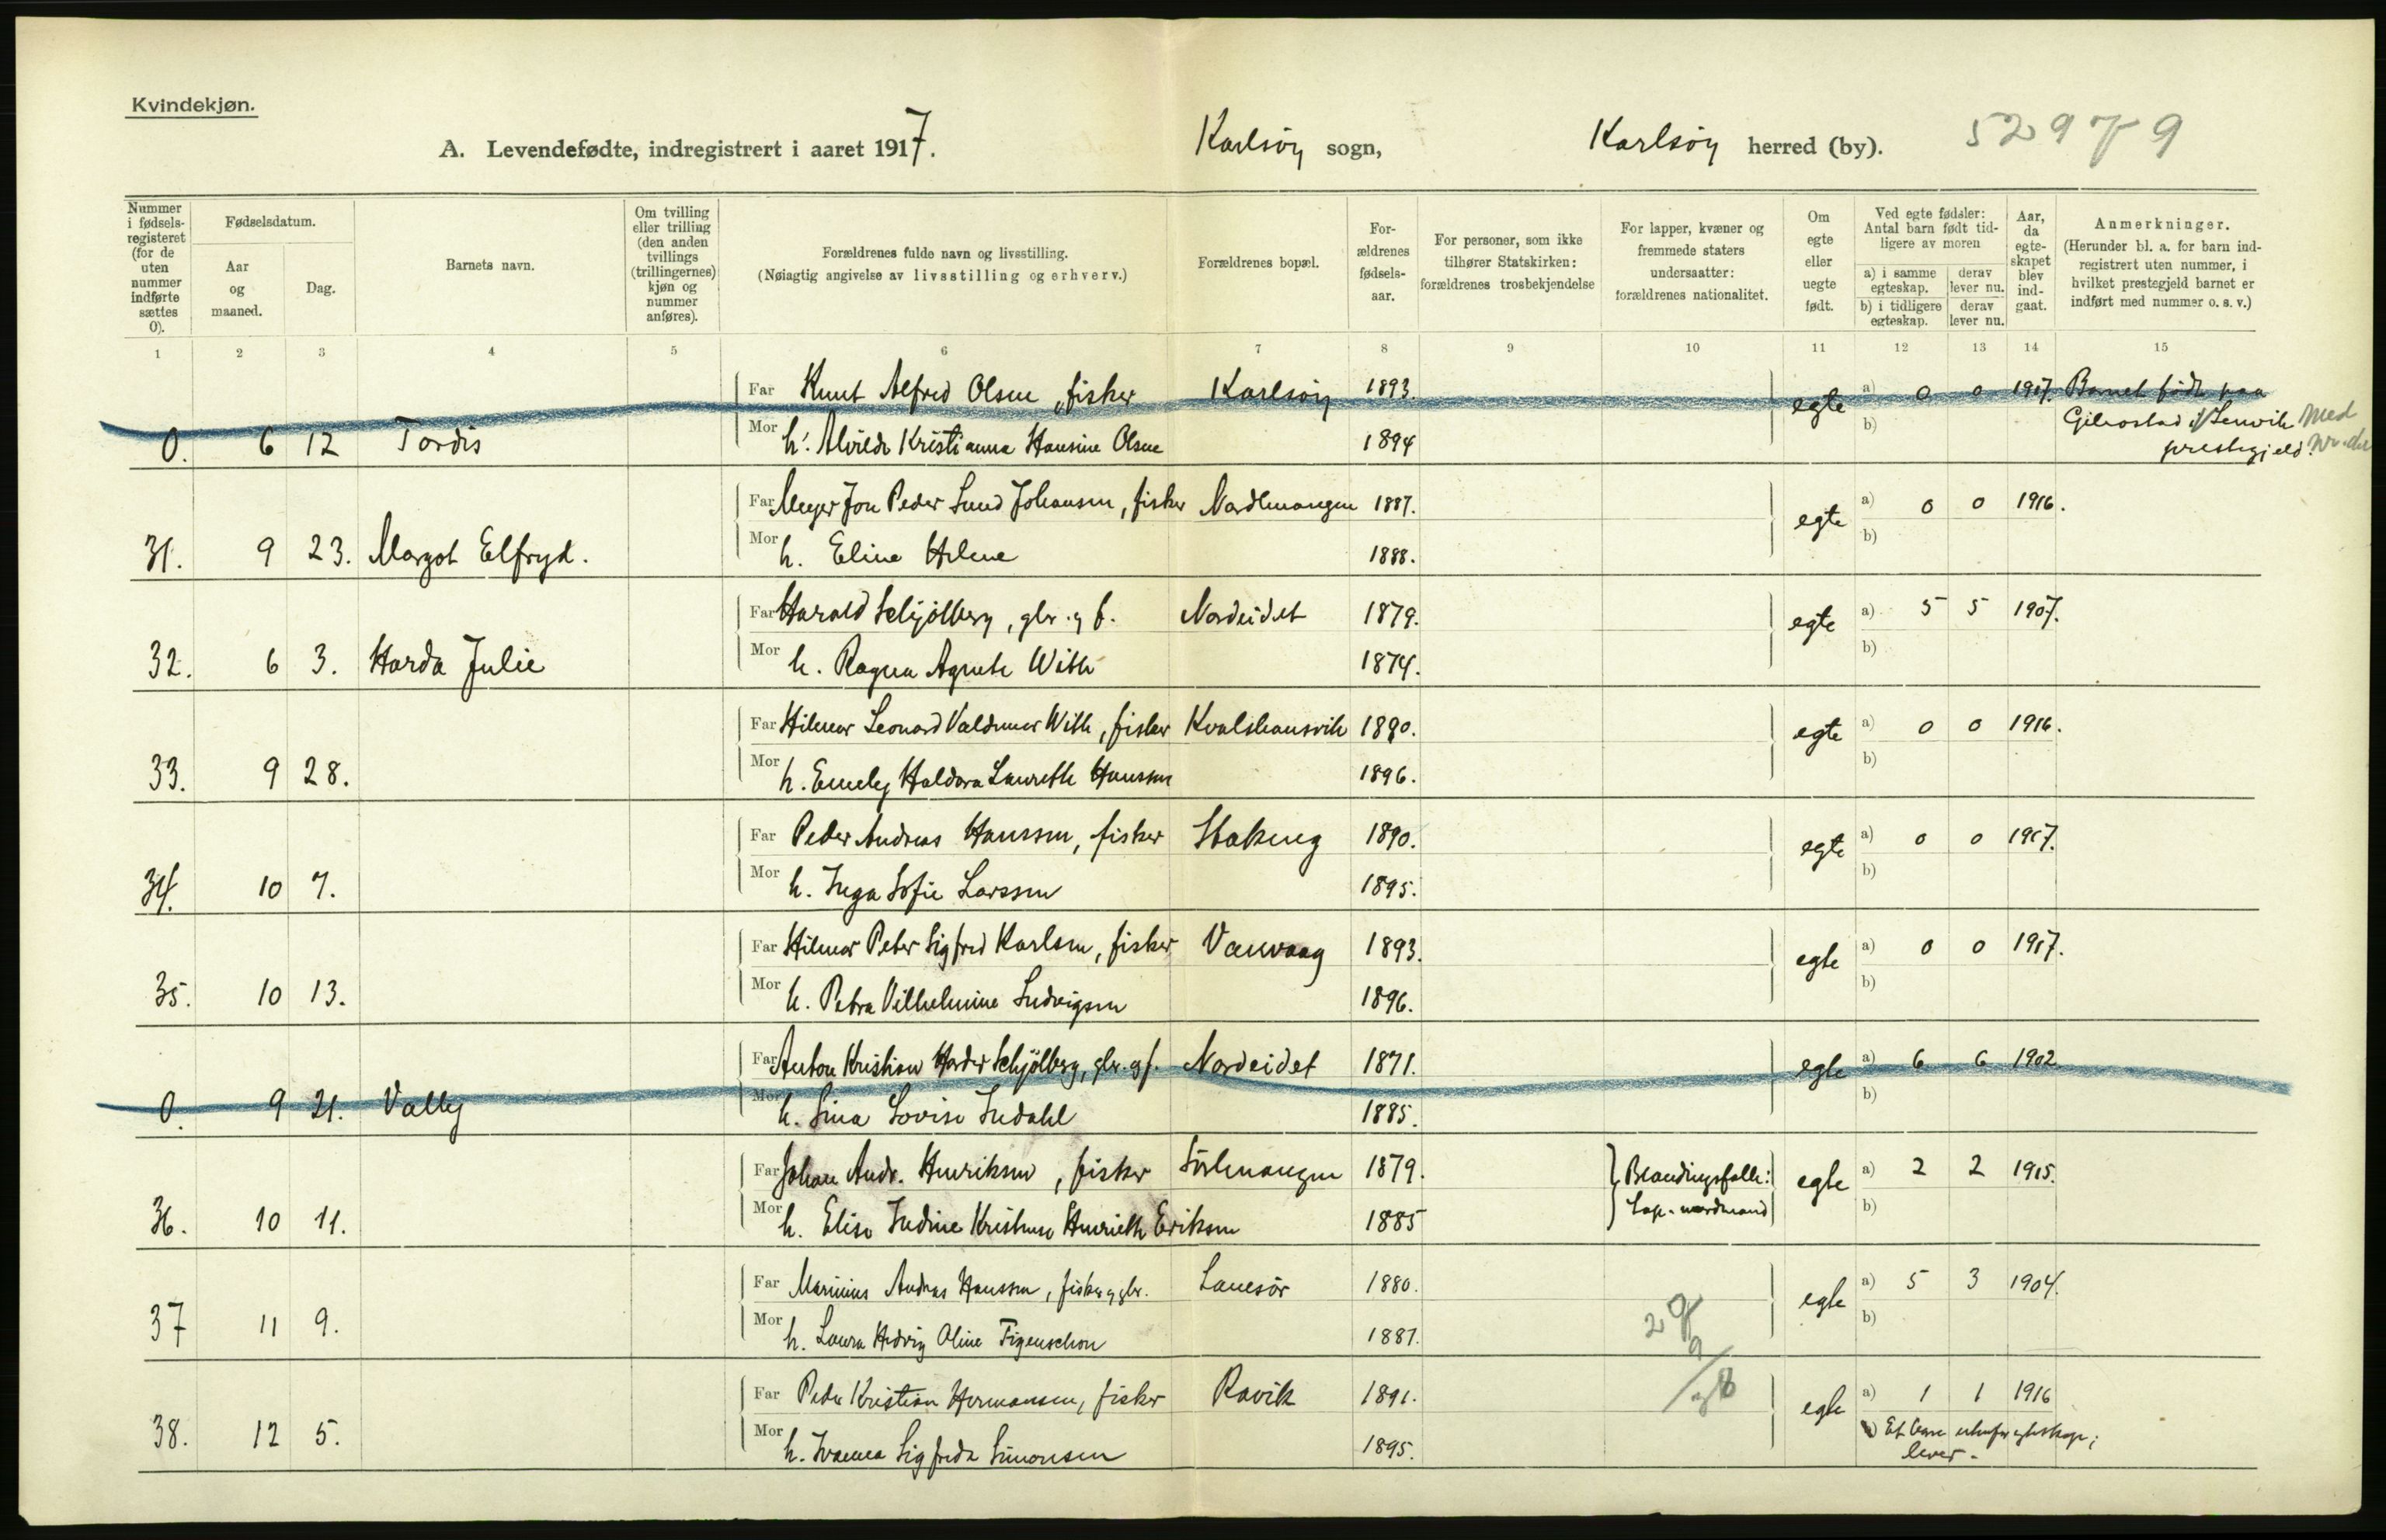 Kvindekjøn.
A. Levendefødte, indregistrert i aaret 1917. Karlsöy sogn, Karlsöy herred (by). 52979
Nummer i fødsels-registeret (for de uten nummer indførte sættes 0).
Fødselsdatum.
Aar og maaned.
Dag.
Barnets navn.
Om tvilling eller trilling (den anden tvillings (trillingernes) kjøn og nummer anføres).
Forældrenes fulde navn og livsstilling.
(Nøiagtig angivelse av livsstilling og erhverv.)
Forældrenes bopæl.
For-ældrenes fødsels-aar.
For personer, som ikke tilhører Statskirken: forældrenes trosbekjendelse
For lapper, kvæner og fremmede staters undersaatter: forældrenes nationalitet.
Om egte eller uegte født.
Ved egte fødsler: Antal barn født tid-ligere av moren
a) i samme egteskap. derav lever nu.
b) i tidligere egteskap. derav lever nu.
Aar, da egte-skapet blev ind-gaat.
Anmerkninger.
(Herunder bl. a. for barn ind-registrert uten nummer, i hvilket prestegjeld barnet er indført med nummer o. s. v.)
1 2 3 4 5 6 7 8 9 10 11 12 13 14 15
Far Knut Alfred Olsen, fisker Karlsöy 1893. egte a) 0 0 1917. Barnet födt paa
0. 6 12 Tordis Mor h. Alvilde Kristianna Hansine Olsen 1894 b) Gibostad i Lenvik prestegjeld. Med
Far Meyer Jon Peder Lund Johansen, fisker Nordlenangen 1887. egte a) 0 0 1916.
31. 9 23. Margot Elfryd. Mor h. Eline Helene 1888. b)
Far Harald Schjölberg, gbr. og f. Nordeidet 1879. egte a) 5 5 1907.
32. 6 3. Harda Julie Mor h. Ragna Agnete With 1874. b)
Far Hilmar Leonard Valdemar With, fisker Kvalshausvik 1890. egte a) 0 0 1916.
33. 9 28. Mor h. Emely Haldora Laureth Hanssen 1896. b)
Far Peder Andreas Hanssen, fisker Stakeng 1890. egte a) 0 0 1917.
34. 10 7. Mor h. Inga Sofie Larssen 1895. b)
Far Hilmar Peter Sigfred Karlsen, fisker Vanvaag 1893. egte a) 0 0 1917.
35. 10 13. Mor h. Petra Vilhelmine Ludvigsen 1896. b)
Far Anton Kristian Harder Schjölberg, gbr. og f. Nordeidet 1871. egte a) 6 6 1902
0. 9 21. Vally Mor h. Lina Lovise Indahl 1885. b)
Far Johan Andr. Henriksen, fisker Sörlenangen 1879. Blandingsfolk: egte a) 2 2 1915.
36. 10 11. Mor h. Elise Indine Kristense Henriette Eriksen 1885 Lap-nordmand b)
Far Marinius Andreas Hanssen, fisker og gbr. Lanesör 1880. egte a) 5 3 1904.
37 11 9. Mor h. Laura Hedvig Oline Figenschou 1881. b)
Far Peder Kristian Hermansen, fisker Ravik 1891. egte a) 1 1 1916
38. 12 5. Mor h. Ivanna Sigfrida Simonsen 1895. b) Et barn utenfor egteskap; lever.